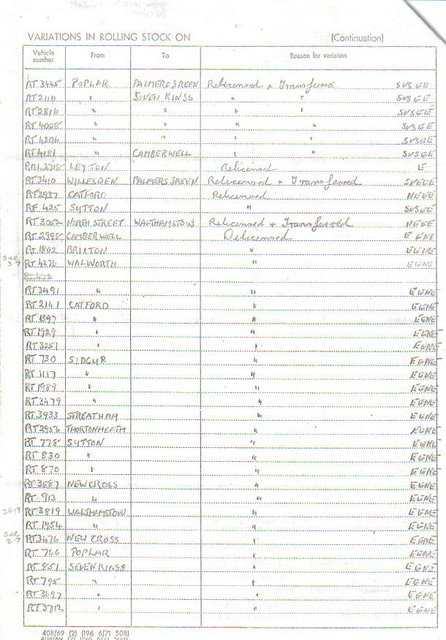 VARIATIONS IN ROLLING STOCK ON (Continuation)
Vehicle number From To Reason for variation
RT 3445 POPLAR PALMERS GREEN Relicensed & Transferred
RT 2116 " SEVEN KINGS " "
RT 2816 " " " "
RT 4008 " " " "
RT 4204 " " " "
RT 4181 " CAMBERWELL " "
LEYTON Relicensed E
RT 3410 WILLESDEN PALMERS GREEN Relicensed & Transferred
CATFORD Relicensed
RT 425 SUTTON "
NORTH STREET WALTHAMSTOW Relicensed & Transferred
RT 2998 CAMBERWELL Delicensed
RT 1802 BRIXTON " EGNE
RT 4276 WALWORTH " EGNE
RT 3491 " " EGNE
RT 2141 CATFORD " EGNE
RT 1397 " " EGNE
RT 1929 " " EGNE
RT 3281 " " EGNE
RT 720 SIDCUP " EGNE
RT 1117 " " EGNE
RT 1989 " " EGNE
RT 3479 " " EGNE
RT 3933 STREATHAM " EGNE
THORTONHEATH " EGNE
RT 778 SUTTON " EGNE
RT 830 " " EGNE
RT 870 " " EGNE
RT 3587 NEW CROSS " EGNE
RT 912 " " EGNE
RT 3819 WALTHAMSTOW " EGNE
RT 1954 " " EGNE
RT 3476 NEW CROSS " EGNE
RT 766 POPLAR " EGNE
RT 851 SEVEN KINGS " EGNE
RT 795 " " EGNE
RT 3497 " " EGNE
" " EGNE
408/69 (2) (196 6/71 508)